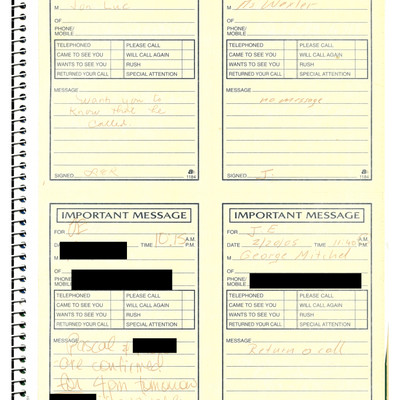 M Jean Luc
OF
PHONE/
MOBILE
TELEPHONED PLEASE CALL
CAME TO SEE YOU WILL CALL AGAIN
WANTS TO SEE YOU RUSH
RETURNED YOUR CALL SPECIAL ATTENTION
MESSAGE
wants you to
know that he
called.
SIGNED
1184
M Ms Wexler
OF
PHONE/
MOBILE
TELEPHONED PLEASE CALL
CAME TO SEE YOU WILL CALL AGAIN
WANTS TO SEE YOU RUSH
RETURNED YOUR CALL SPECIAL ATTENTION
MESSAGE
no message
SIGNED J.
1184
IMPORTANT MESSAGE
FOR JE
DATE TIME 10.15 A.M.
P.M.
M
OF
PHONE/
MOBILE
TELEPHONED PLEASE CALL
CAME TO SEE YOU WILL CALL AGAIN
WANTS TO SEE YOU RUSH
RETURNED YOUR CALL SPECIAL ATTENTION
MESSAGE
Pascal &
are confirmed
for 4pm tomorrow
IMPORTANT MESSAGE
FOR J E
DATE 2/20/05 TIME 11.40 A.M.
P.M.
M George Mitchel
OF
PHONE/
MOBILE
TELEPHONED PLEASE CALL
CAME TO SEE YOU WILL CALL AGAIN
WANTS TO SEE YOU RUSH
RETURNED YOUR CALL SPECIAL ATTENTION
MESSAGE
Return a call